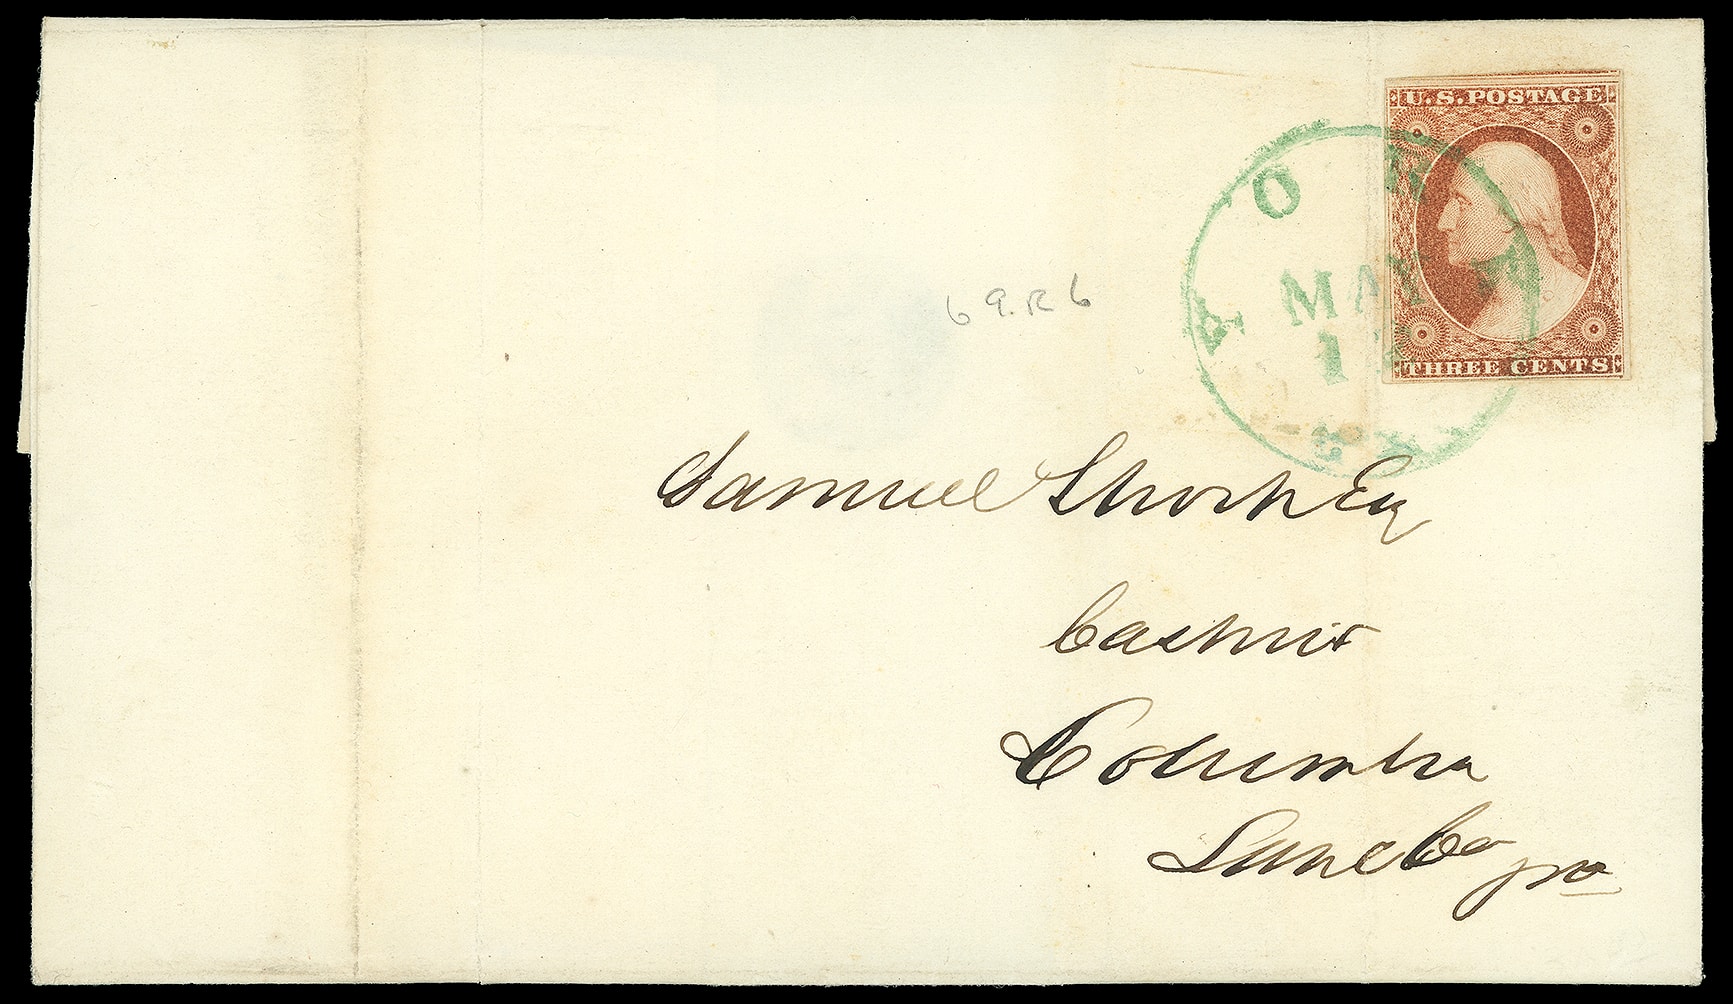 U.S. POSTAGE
YORK
MAY
Pa
THREE CENTS
6 9.R 6
Samuel Shoch Esq
Cashier
Columbia
Lanc Co
pa